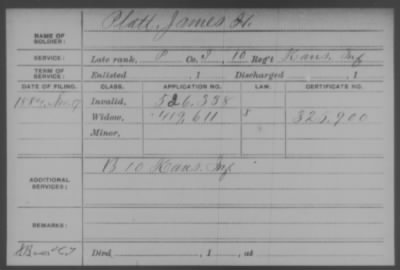 Platt, James H.
NAME OF SOLDIER:
SERVICE: Late rank, P Co. I, 10 Reg't Kans. Inf
TERM OF SERVICE: Enlisted , 1 Discharged , 1
DATE OF FILING. CLASS. APPLICATION NO. LAW. CERTIFICATE NO.
1884, Nov. 17 Invalid, 526.358
Widow, 419,611 325.900
Minor,
ADDITIONAL SERVICES: B 10 Kans. Inf
REMARKS:
Died , 1 , at